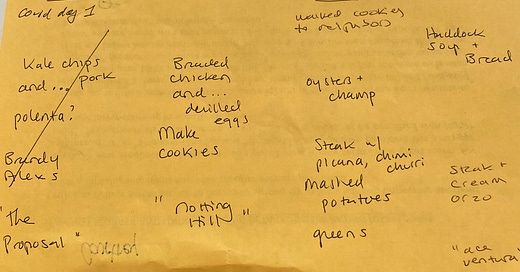 Covid day 1
Kale chips
and... pork
polenta?
Brandy
Alexs
"the
Proposal"
Braded
chicken
and...
devilled
eggs
Make
cookies
"notting
Hill"
walked cookies
to neighbors
oysters +
champ
Steak w/
picana, chimi
churri
Mashed
potatoes
greens
Haddock
Soup +
Bread
Steak +
cream
orzo
"ace
ventura"